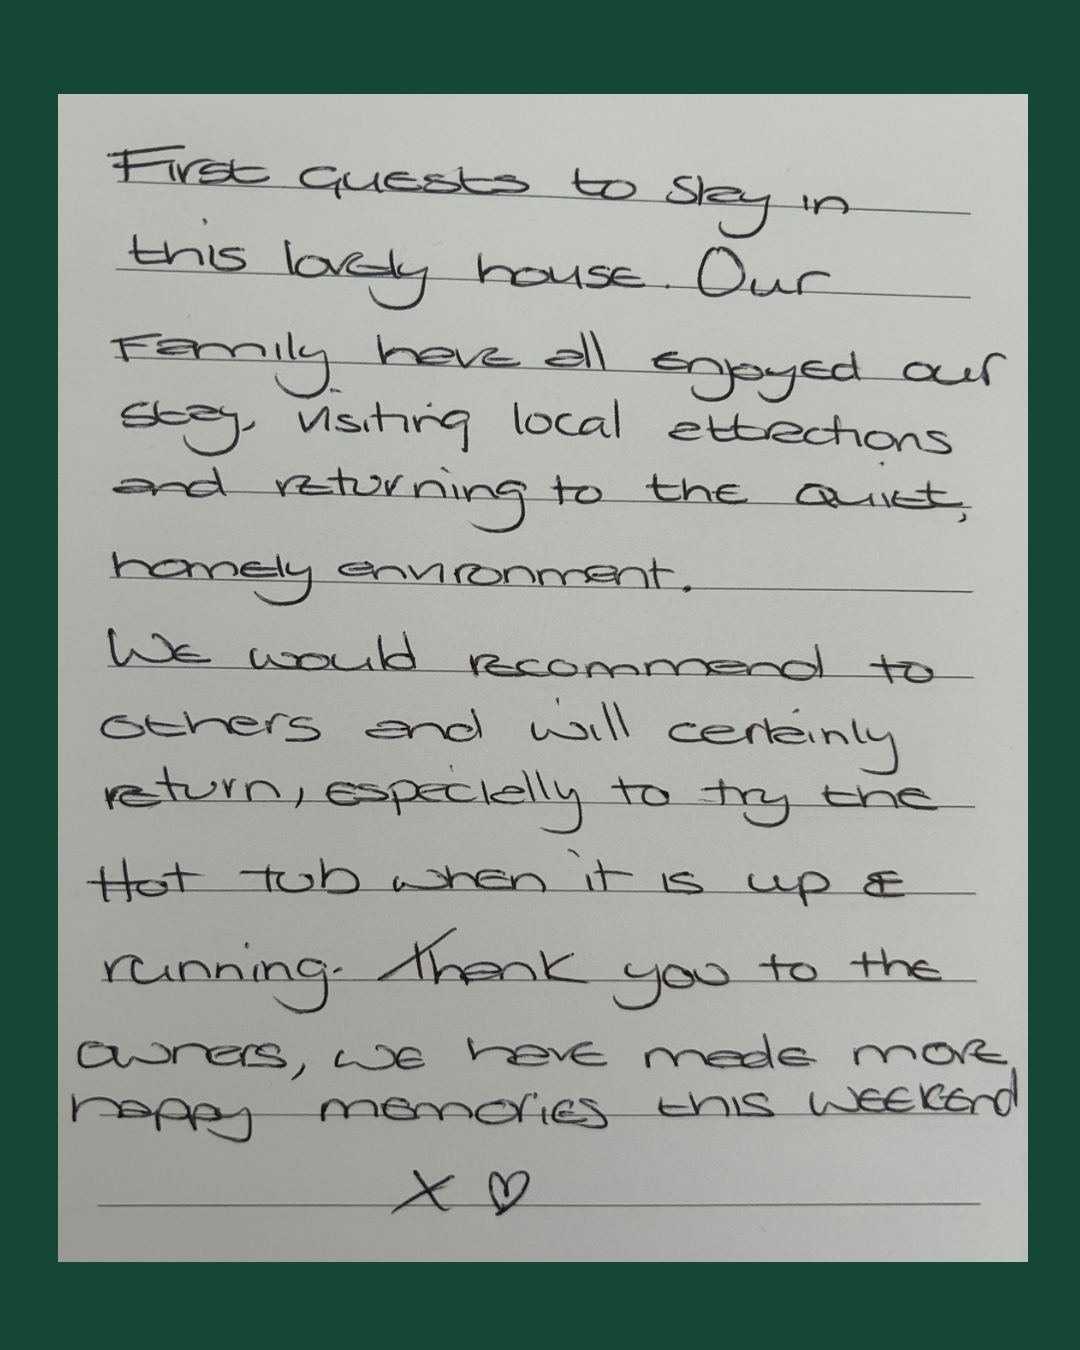 First Guests to stay in
this lovely house. Our
Family have all enjoyed our
stay, visiting local attractions
and returning to the quiet,
homely environment.
We would recommend to
others and will certainly
return, especially to try the
Hot Tub when it is up &
running. Thank you to the
owners, we have made more
happy memories this weekend
X ♡